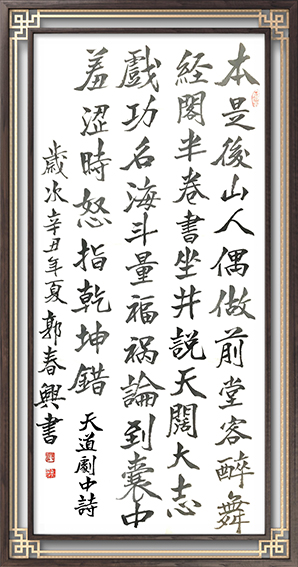 本是後山人偶做前堂客醉舞
經閣半卷書坐井説天闊大志
戲功名海斗量福祸論到囊中
羞涩時怒指乾坤錯
天道劇中詩
歲次辛丑年夏郭春興書